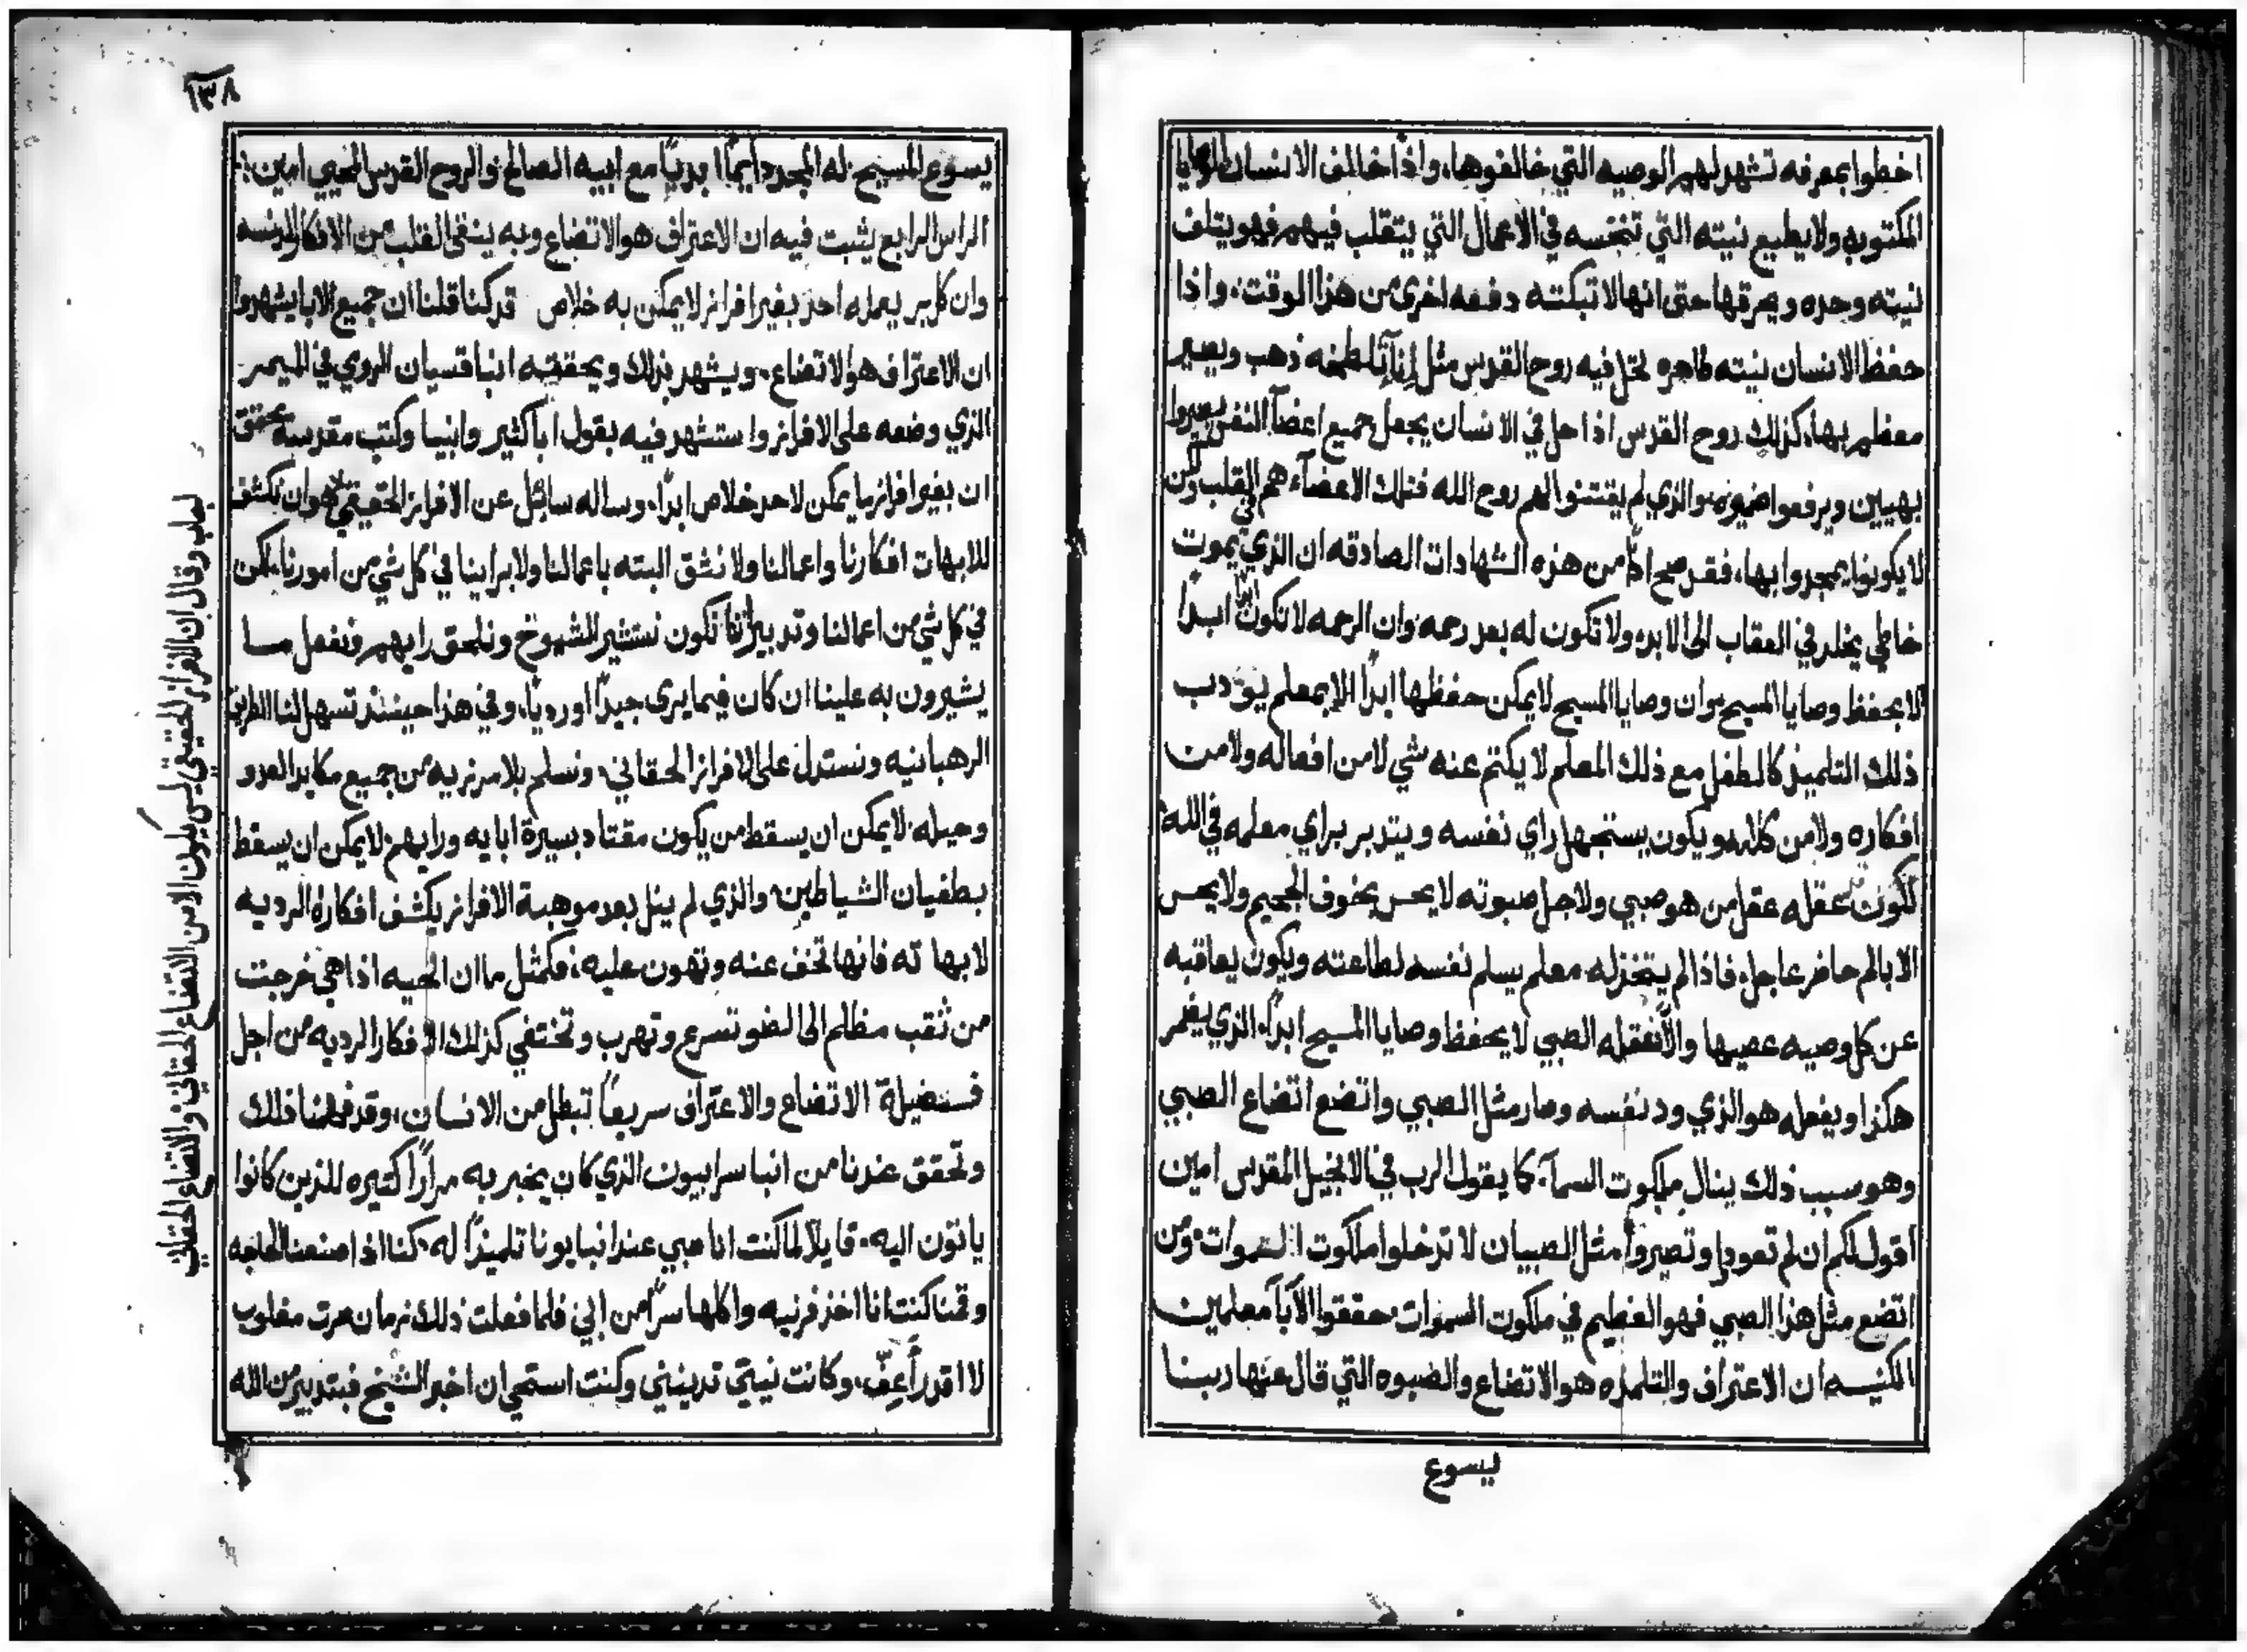 اخطوا بمعرفه تشهد لهم الوصيه التي خالفوها، واذا خالف الانسان الوصايا
المكتوبه ولا يطيع نيته التي تنخسه في الاعمال التي يتقلب فيهم فهو يتلف
نيته وحده ويحرقها حتى انها لا تبكته دفعه اخرى من هذا الوقت، واذا
حفظ الانسان نيته طاهره تحل فيه روح القدس مثل ذهب ويصير
بها، كذلك روح القدس اذا حل في الانسان يجعل جميع اعضآ النفس يصيروا
بهيين ويرفعوا والذي لم يقتنوا لهم روح الله فتلك الاعضآء هم القلب
لا يكونوا يمجدوا بها، فقد صح اذاً من هذه الشهادات الصادقه ان الذي يموت
خاطي يخلد في العقاب الى الابد، ولا تكون له بعد رحمه، وان الرحمه لا تكون ابداً
الا بحفظ وصايا المسيح، وان وصايا المسيح لا يمكن حفظها ابداً الا بمعلم يودب
ذلك التلميذ كالطفل مع ذلك المعلم لا يكتم عنه شي لا من افعاله ولا من
افكاره ولا من كلامه ويكون يستجهل راي نفسه ويتدبر براي معلمه في الله
لكون عقله عقل من هو صبي ولاجل صبوته لا يحس بخوف الجحيم ولا يحس
الا بالم حاضر عاجل، فاذا لم يتخذ له معلم يسلم نفسه لطاعته ويكون يعاقبه
عن كل وصيه عصيها والا فعقله الصبي لا يحفظ وصايا المسيح ابداً، الذي يفهم
هكذا ويفعله هو الذي ود نفسه وصار مثل الصبي واتضع اتضاع الصبي
وهو سبب ذلك ينال ملكوت السمآء، كما يقول الرب في الانجيل المقدس امين
اقول لكم ان لم تعودوا وتصيروا مثل الصبيان لا تدخلوا ملكوت السموات، ومن
اتضع مثل هذا الصبي فهو العظيم في ملكوت السموات، حققوا الابآ معلمين
الكنيسه ان الاعتراف والتلمذه هو الاتضاع والصبوه التي قال عنها ربنا
يسوع
١٣٨
يسوع المسيح له المجد دايماً ابدياً مع ابيه الصالح والروح القدس المحيي امين
الراس الرابع يثبت فيه ان الاعتراف هو الاتضاع وبه ينقى القلب من الافكار الدنسه
وان كل بر يعمله احد بغير افراز لا يمكن به خلاص قد كنا قلنا ان جميع الابا يشهدوا
ان الاعتراف هو الاتضاع، ويشهد بذلك ويحققه انبا قسيان الروي في الميمر
الذي وضعه على الافراز واستشهد فيه بقول ابا كثير وانبيا وكتب مقدسه تحقق
ان بغير افراز ما يمكن لاحد خلاص ابداً، وساله سائل عن الافراز الحقيقي هو ان نكشف
للابهات افكارنا واعمالنا ولا نثق البته باعمالنا ولا براينا في كل شي من امورنا لكن
في كل شي من اعمالنا وتدبيراتنا نكون نستشير الشيوخ ونلحق رايهم ونفعل ما
يشيرون به علينا ان كان فيما يرى جيداً او رديا، وفي هذا حينئذ تسهل لنا الطريق
الرهبانيه ونستدل على الافراز الحقاني، ونسلم بلا مرزيه من جميع مكايد العدو
وحيله، لا يمكن ان يسقط من يكون مقتاد بسيرة ابايه ورايهم، لا يمكن ان يسقط
بطغيان الشياطين، والذي لم ينل بعد موهبة الافراز يكشف افكاره الرديه
لابهاته فانها تخف عنه وتهون عليه، فكمثل ما ان الحيه اذا هي خرجت
من ثقب مظلم الى الضو تسرع وتهرب وتختفي كذلك الافكار الرديه من اجل
فضيلة الاتضاع والاعتراف سريعاً تبطل من الانسان، وقد ذلك
وتحقق عندنا من انبا سرابيون الذي كان يخبر به مراراً كثيره للذين كانوا
ياتون اليه، قايلا لما كنت انا صبي عند انبا يونا تلميذاً له، كنا اذا صنعنا الحاجه
وقمنا كنت انا اخذ فرنيه واكلها سراً من ابي فلما فعلت ذلك زمان صرت مغلوب
لا اقدر اَعِفّ، وكانت نيتي تدينني وكنت استحي ان اخبر الشيخ فبتدبير من الله
وقال ان الافراز الحقيقي ليس يكون الا من الاتضاع الحقاني، والاتضاع الحقاني